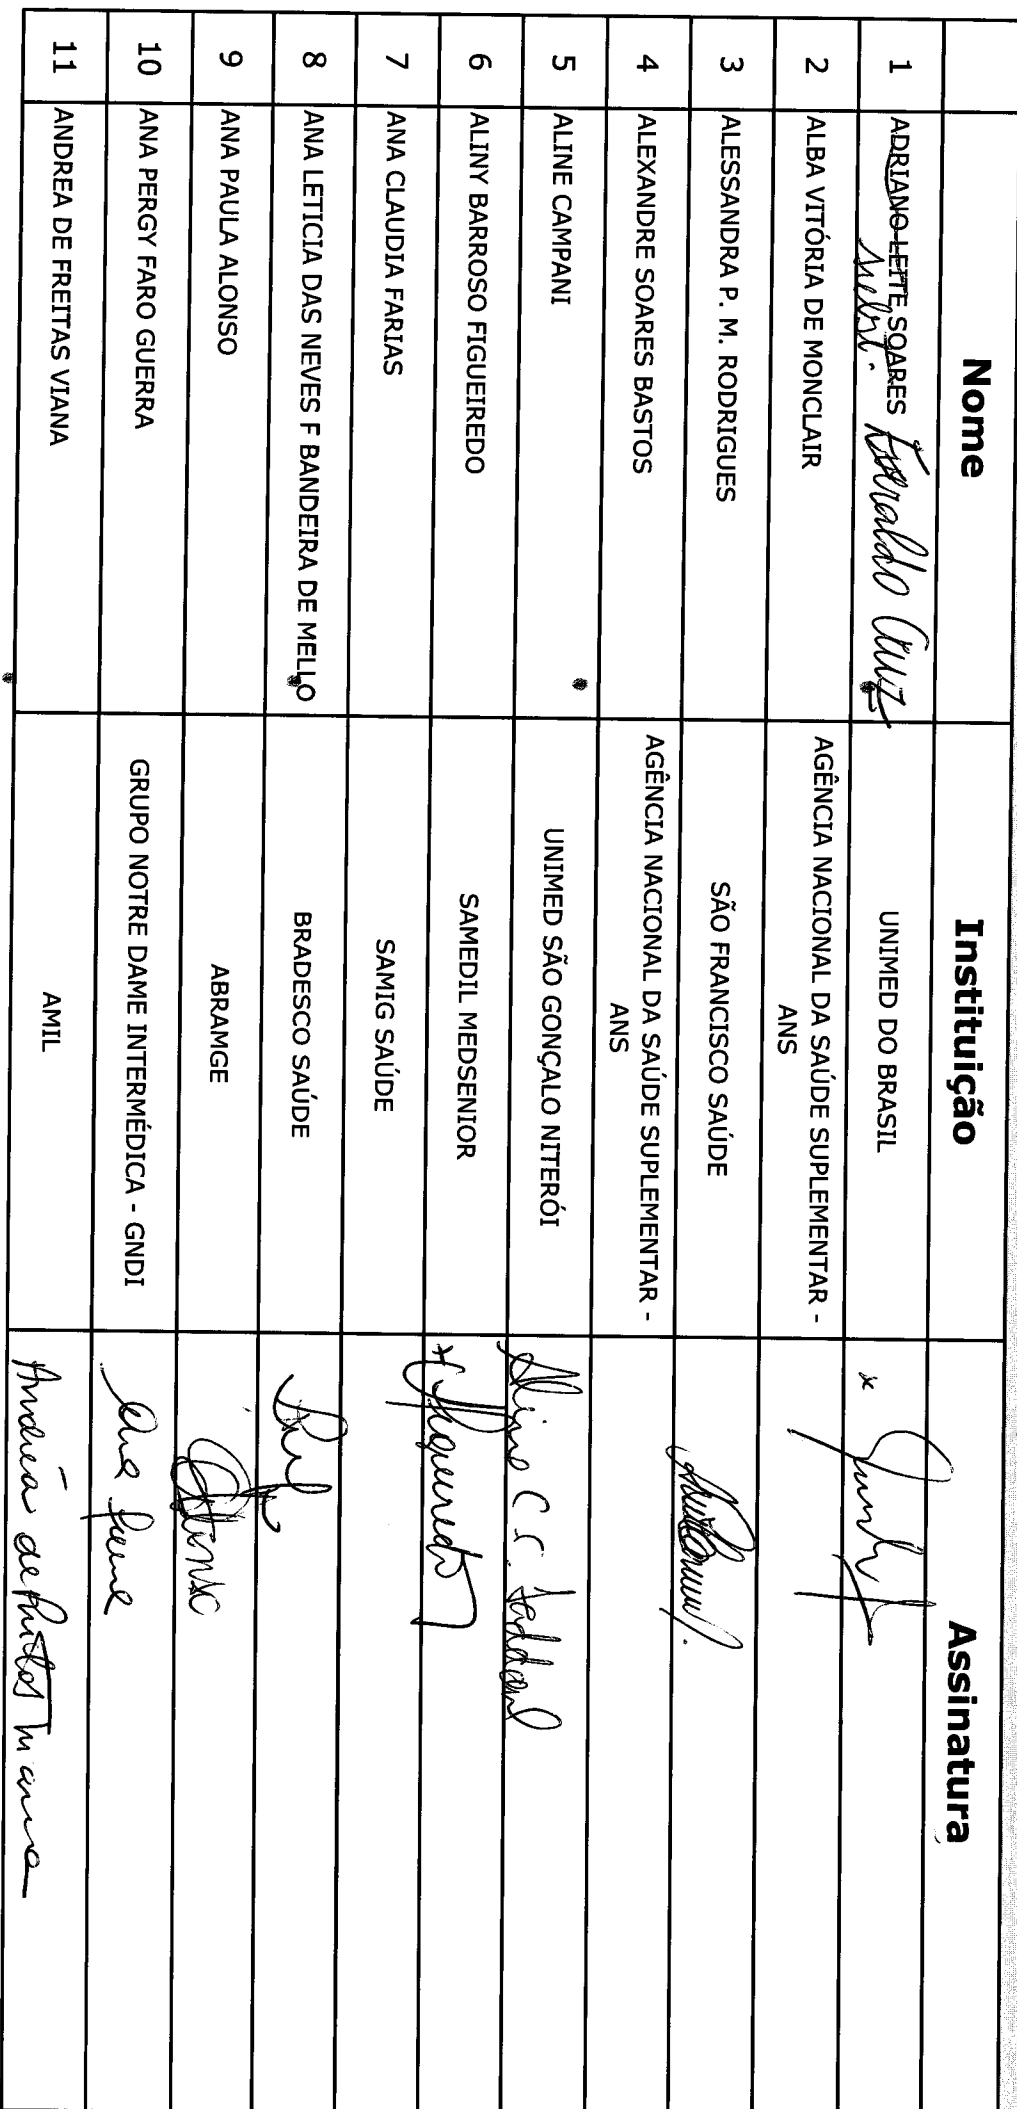 Nome Instituição Assinatura
1 ADRIANO LEITE SOARES Everaldo Cruz UNIMED DO BRASIL x
subst.
2 ALBA VITÓRIA DE MONCLAIR AGÊNCIA NACIONAL DA SAÚDE SUPLEMENTAR -
ANS
3 ALESSANDRA P. M. RODRIGUES SÃO FRANCISCO SAÚDE
4 ALEXANDRE SOARES BASTOS AGÊNCIA NACIONAL DA SAÚDE SUPLEMENTAR -
ANS
5 ALINE CAMPANI UNIMED SÃO GONÇALO NITERÓI Aline C. C.
6 ALINY BARROSO FIGUEIREDO SAMEDIL MEDSENIOR Figueiredo
7 ANA CLAUDIA FARIAS SAMIG SAÚDE
8 ANA LETICIA DAS NEVES F BANDEIRA DE MELLO BRADESCO SAÚDE
9 ANA PAULA ALONSO ABRAMGE Alonso
10 ANA PERGY FARO GUERRA GRUPO NOTRE DAME INTERMÉDICA - GNDI Ana
11 ANDREA DE FREITAS VIANA AMIL Andréa de Freitas Viana